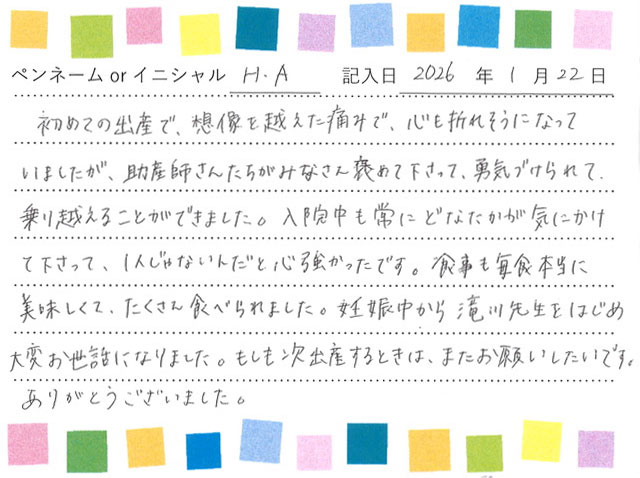 ペンネーム or イニシャル H.A 記入日 2026 年 1 月 22 日
初めての出産で、想像を越えた痛みで、心も折れそうになって
いましたが、助産師さんたちがみなさん褒めて下さって、勇気づけられて、
乗り越えることができました。入院中も常にどなたかが気にかけ
て下さって、1人じゃないんだと心強かったです。食事も毎食本当に
美味しくて、たくさん食べられました。妊娠中から滝川先生をはじめ
大変お世話になりました。もしも次出産するときは、またお願いしたいです。
ありがとうございました。